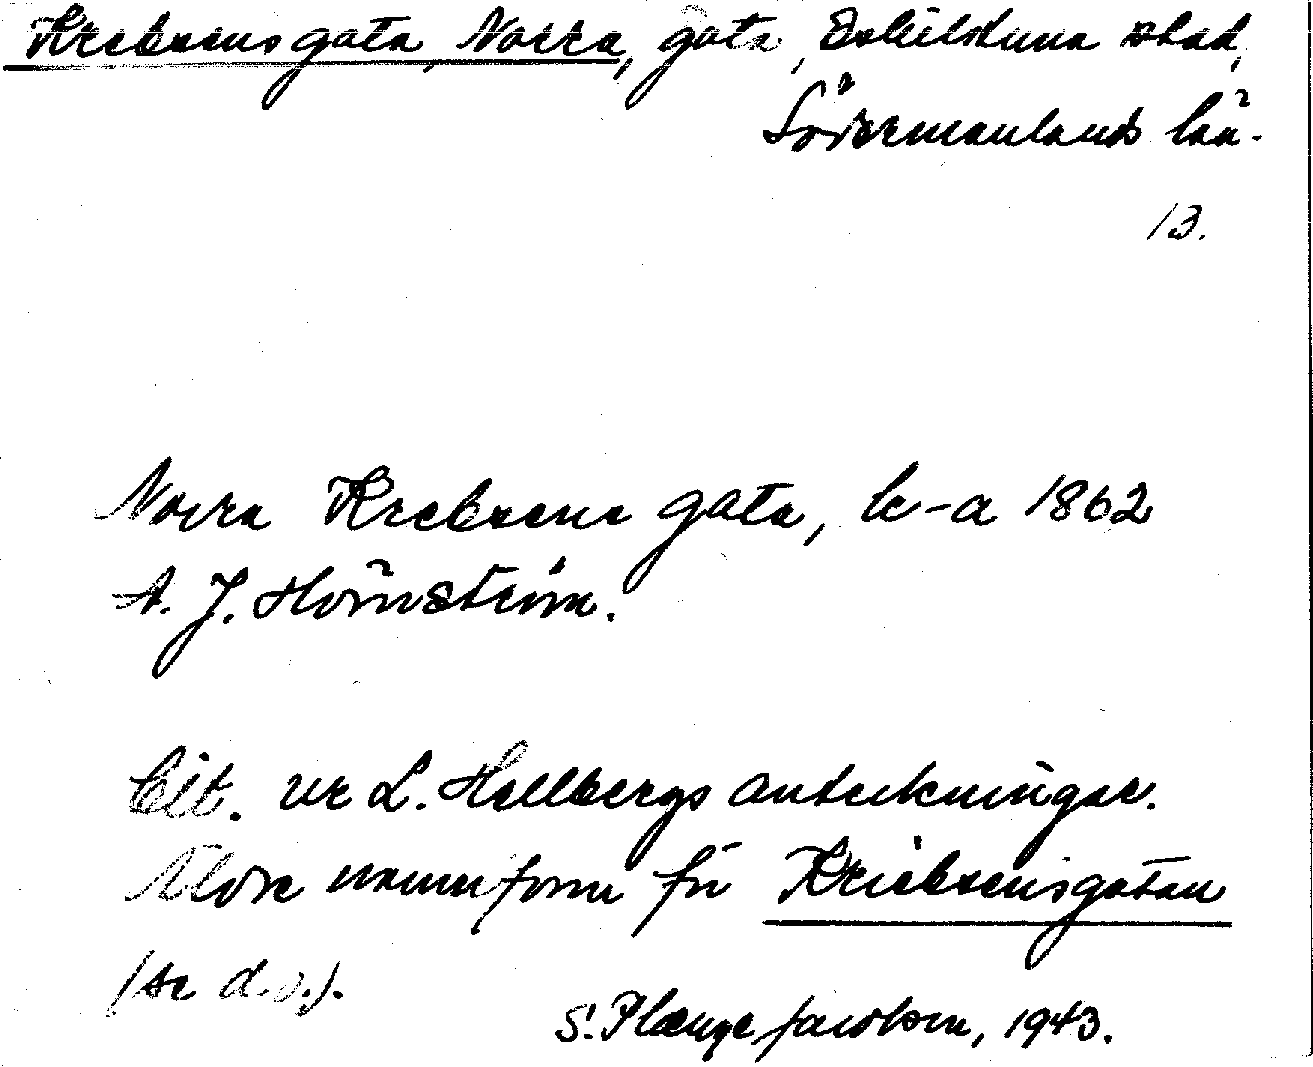 Krebsens gata, Norra, gata, Eskilstuna stad,
Södermanlands län.
13.
Norra Krebsens gata, k-a 1862
A. J. Hörnström.
Cit. ur L. Hellbergs anteckningar.
Äldre namnform för Kriebsensgatan
(se d. o.).
S. Plænge Jacobson, 1943.